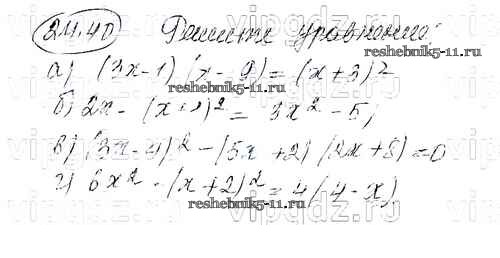 24.40 Решите уравнение:
а) (3x-1)(x-9)=(x+3)²
б) 2x-(x+2)²=3x²-5;
в) (3x-4)²-(5x+2)(2x+8)=0
г) 6x²-(x+2)²=4(4-x)
reshebnik5-11.ru
reshebnik5-11.ru
reshebnik5-11.ru
vipgdz.ru